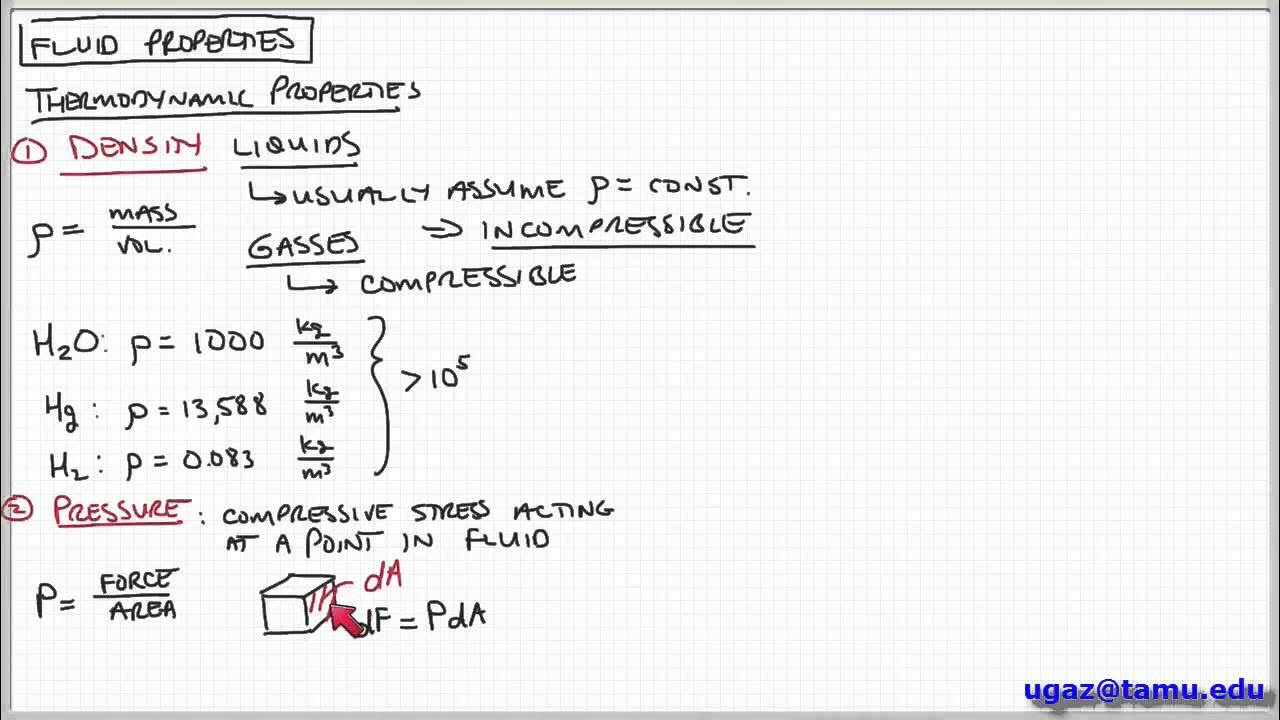 FLUID PROPERTIES
THERMODYNAMIC PROPERTIES
① DENSITY LIQUIDS
↳ USUALLY ASSUME ρ = CONST.
⇒ INCOMPRESSIBLE
ρ = MASS / VOL.
GASSES
↳ COMPRESSIBLE
H₂O: ρ = 1000 kg/m³
Hg: ρ = 13,588 kg/m³
> 10⁵
H₂: ρ = 0.083 kg/m³
② PRESSURE: COMPRESSIVE STRESS ACTING
AT A POINT IN FLUID
P = FORCE / AREA
dA
dF = PdA
ugaz@tamu.edu